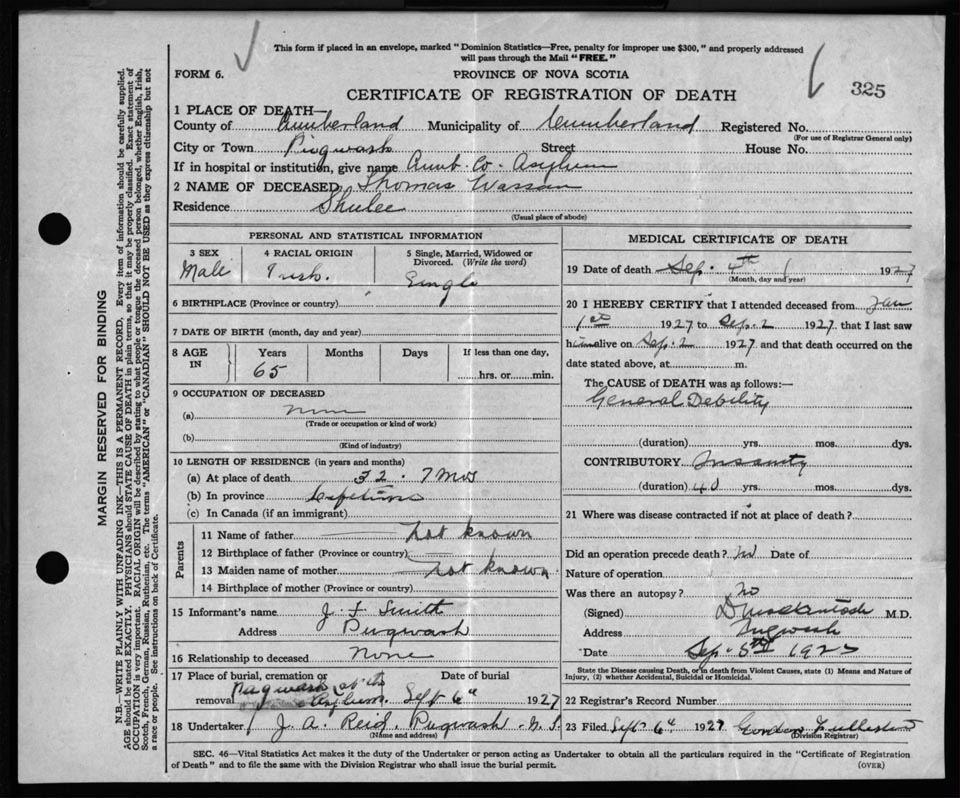 This form if placed in an envelope, marked "Dominion Statistics—Free, penalty for improper use $300," and properly addressed
will pass through the Mail "FREE."
FORM 6.
PROVINCE OF NOVA SCOTIA
325
CERTIFICATE OF REGISTRATION OF DEATH
1 PLACE OF DEATH—
County of Cumberland Municipality of Cumberland Registered No.
(For use of Registrar General only)
City or Town Pugwash Street House No.
If in hospital or institution, give name Cumb. Co. Asylum
2 NAME OF DECEASED Thomas Wasson
Residence Shulee
(Usual place of abode)
PERSONAL AND STATISTICAL INFORMATION
3 SEX
Male
4 RACIAL ORIGIN
Irish.
5 Single, Married, Widowed or
Divorced. (Write the word)
Single
6 BIRTHPLACE (Province or country)
7 DATE OF BIRTH (month, day and year)
8 AGE
IN
Years Months Days If less than one day,
65
hrs. or min.
9 OCCUPATION OF DECEASED
(a) none
(Trade or occupation or kind of work)
(b)
(Kind of industry)
10 LENGTH OF RESIDENCE (in years and months)
(a) At place of death 32. 7 mos
(b) In province Lifetime
(c) In Canada (if an immigrant)
Parents
11 Name of father not known
12 Birthplace of father (Province or country)
13 Maiden name of mother not known
14 Birthplace of mother (Province or country)
15 Informant's name J. F. Smith
Address Pugwash
16 Relationship to deceased None
17 Place of burial, cremation or
removal Pugwash at its Asylum.
Date of burial
Sept 6" 1927
18 Undertaker J. A. Reid, Pugwash - N. S.
(Name and address)
MEDICAL CERTIFICATE OF DEATH
19 Date of death Sep. 4th 1927
(Month, day and year)
20 I HEREBY CERTIFY that I attended deceased from Jan
1st 1927 to Sep. 2 1927, that I last saw
him alive on Sep. 2 1927 and that death occurred on the
date stated above, at m.
The CAUSE OF DEATH was as follows:—
General Debility
(duration) yrs. mos. dys.
CONTRIBUTORY Insanity
(duration) 40 yrs. mos. dys.
21 Where was disease contracted if not at place of death?
Did an operation precede death? No Date of
Nature of operation
Was there an autopsy? No
(Signed) D Mackintosh M.D.
Address Pugwash
Date Sep. 5th 1927
State the Disease causing Death, or in death from Violent Causes, state (1) Means and Nature of
Injury, (2) whether Accidental, Suicidal or Homicidal.
22 Registrar's Record Number
23 Filed Sept. 6" 1927 Gordon
(Division Registrar)
SEC. 46—Vital Statistics Act makes it the duty of the Undertaker or person acting as Undertaker to obtain all the particulars required in the "Certificate of Registration
of Death" and to file the same with the Division Registrar who shall issue the burial permit.
(OVER)
MARGIN RESERVED FOR BINDING
N.B.—WRITE PLAINLY WITH UNFADING INK—THIS IS A PERMANENT RECORD. Every item of information should be carefully supplied.
AGE should be stated EXACTLY. PHYSICIANS should STATE CAUSE OF DEATH in plain terms, so that it may be properly classified. Exact statement of
OCCUPATION is very important. RACIAL ORIGIN will be described by stating to what people or tongue the deceased person belonged, whether English, Irish,
Scotch, French, German, Russian, Ruthenian, etc. The terms "AMERICAN" or "CANADIAN" SHOULD NOT BE USED as they express citizenship but not
a race or people. See instructions on back of Certificate.